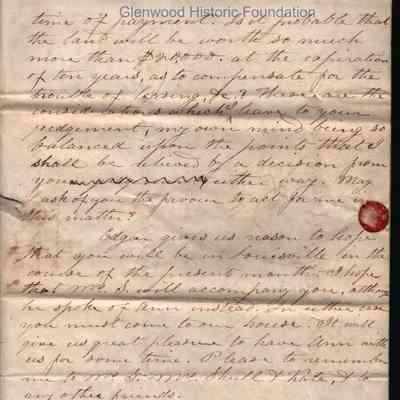 Glenwood Historic Foundation
time of payment. Is it not probable that
the land will be worth so much
more than $20,000. at the expiration
of ten years, as to compensate for the
trouble of leasing, &c.? These are the
considerations which I leave to your
judgement, my own mind being so
balanced upon the points that I
shall be relieved by a decision from
you either way. May
I ask of you the favour to act for me in
this matter?
Edgar gives us reason to hope
that you will be in Louisville in the
course of the present month. I hope
that Mrs. S. will accompany you, altho
he spoke of Ann instead. In either case
you must come to our house. It will
give us great pleasure to have Ann with
us for some time. Please to remember
me to Mrs. Shull & Kate, & to
any other friends.